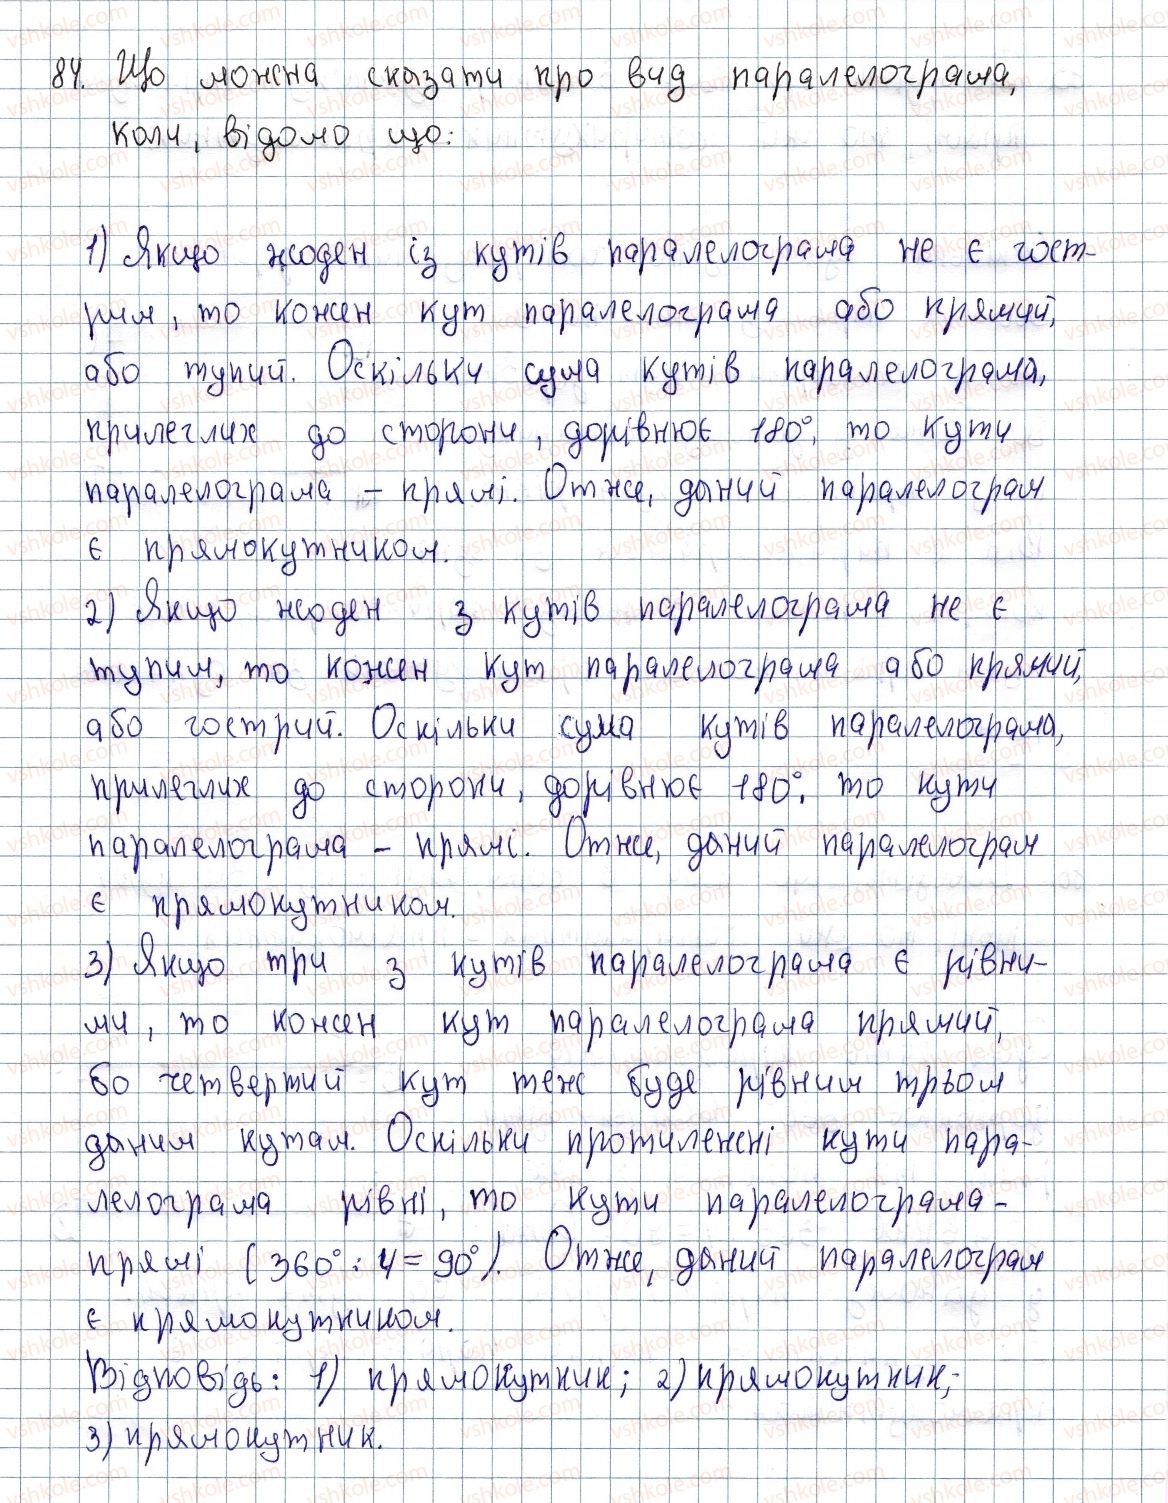 84. Що можна сказати про вид паралелограма,
коли, відомо що:
1) Якщо жоден із кутів паралелограма не є гост-
рим, то кожен кут паралелограма або прямий,
або тупий. Оскільки сума кутів паралелограма,
прилеглих до сторони, дорівнює 180°, то кути
паралелограма - прямі. Отже, даний паралелограм
є прямокутником.
2) Якщо жоден з кутів паралелограма не є
тупим, то кожен кут паралелограма або прямий,
або гострий. Оскільки сума кутів паралелограма,
прилеглих до сторони, дорівнює 180°, то кути
паралелограма - прямі. Отже, даний паралелограм
є прямокутником.
3) Якщо три з кутів паралелограма є рівни-
ми, то кожен кут паралелограма прямий,
бо четвертий кут теж буде рівним трьом
даним кутам. Оскільки протилежні кути пара-
лелограма рівні, то кути паралелограма -
прямі (360° : 4 = 90°). Отже, даний паралелограм
є прямокутником.
Відповідь: 1) прямокутник; 2) прямокутник;
3) прямокутник.